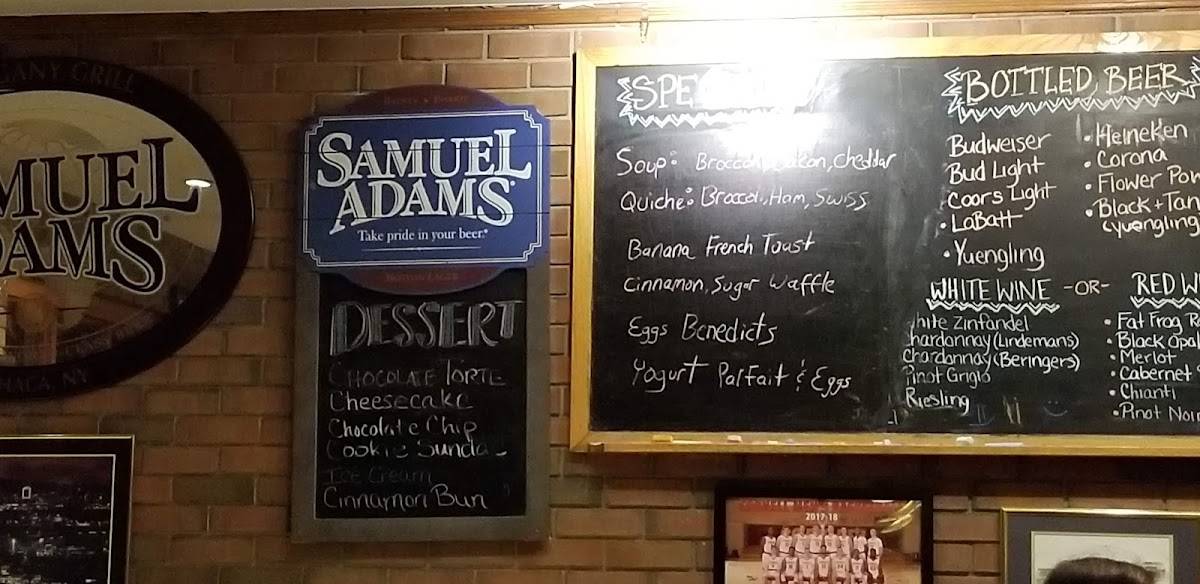 GANY GRILL
MUEL
DAMS
HACA, NY
SAMUEL
ADAMS
Take pride in your beer.
BOSTON LAGER
DESSERT
CHOCOLATE TORTE
Cheesecake
Chocolate Chip
Cookie Sunda
Ice Cream
Cinnamon Bun
SPE
Soup: Broccoli, Bacon, Cheddar
Quiche: Broccoli, Ham, Swiss
Banana French Toast
Cinnamon, Sugar Waffle
Eggs Benedicts
Yogurt Parfait & Eggs
BOTTLED BEER
Budweiser
Bud Light
Coors Light
• LaBatt
• Yuengling
• Heineken
• Corona
• Flower Pow
• Black + Tan
(yuengling
WHITE WINE -OR- RED W
hite Zinfandel
Chardonnay (Lindemans)
Chardonnay (Beringers)
Pinot Grigio
Riesling
• Fat Frog R
• Black Opal
• Merlot
• Cabernet
• Chianti
• Pinot Noi
2017-18